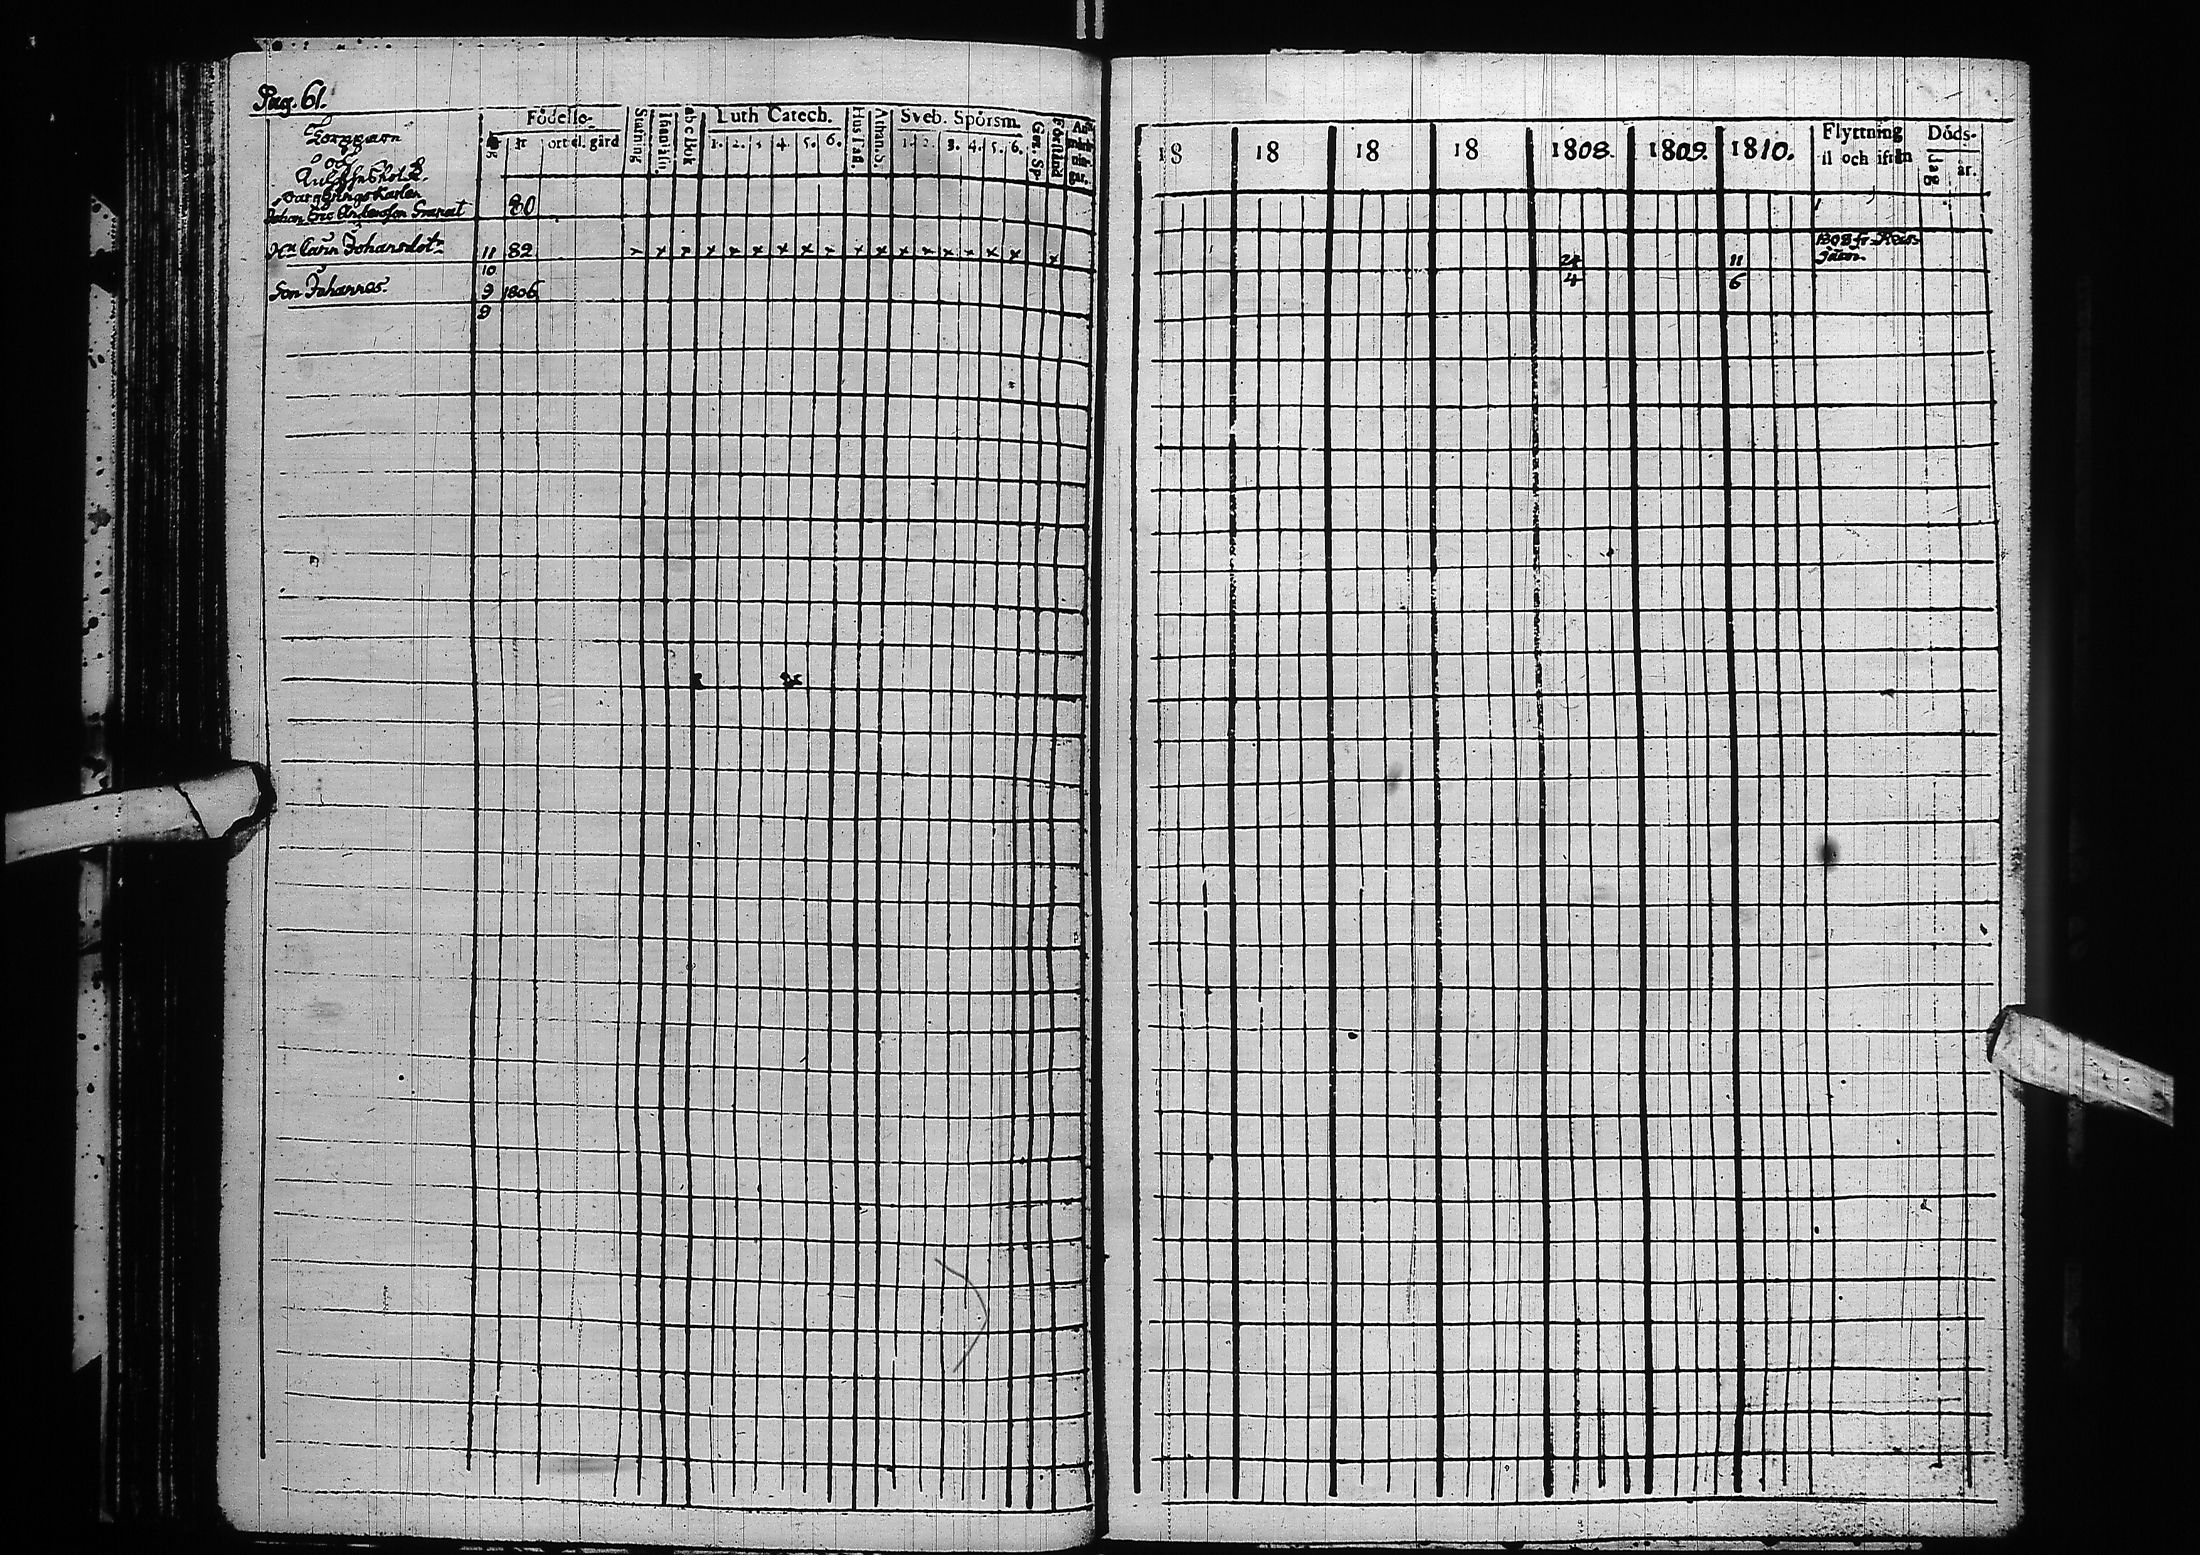 Pag. 61.
Födelse-
år ort el. gård
Stafning
Innanläsn.
abc bok
Luth Catech.
1. 2. 3 4. 5. 6.
Hustafl.
Athan. S.
Sveb. Spörsm.
1. 2. 3. 4. 5. 6.
Gen. Sp.
Förstånd
Anmärkningar.
Torpparn
och
Bargerings Karlen
Johan Eric Andersson Granat 80
Hu Carin Johansdotr 11 82 x x x x x x x x x x x x x x x x x x
10
Son Johannes. 9 1806
9
18 18 18 18 1808. 1809. 1810.
Flyttning
il och ifrån
Döds-
dag år.
1808 fr
24 11
4 6